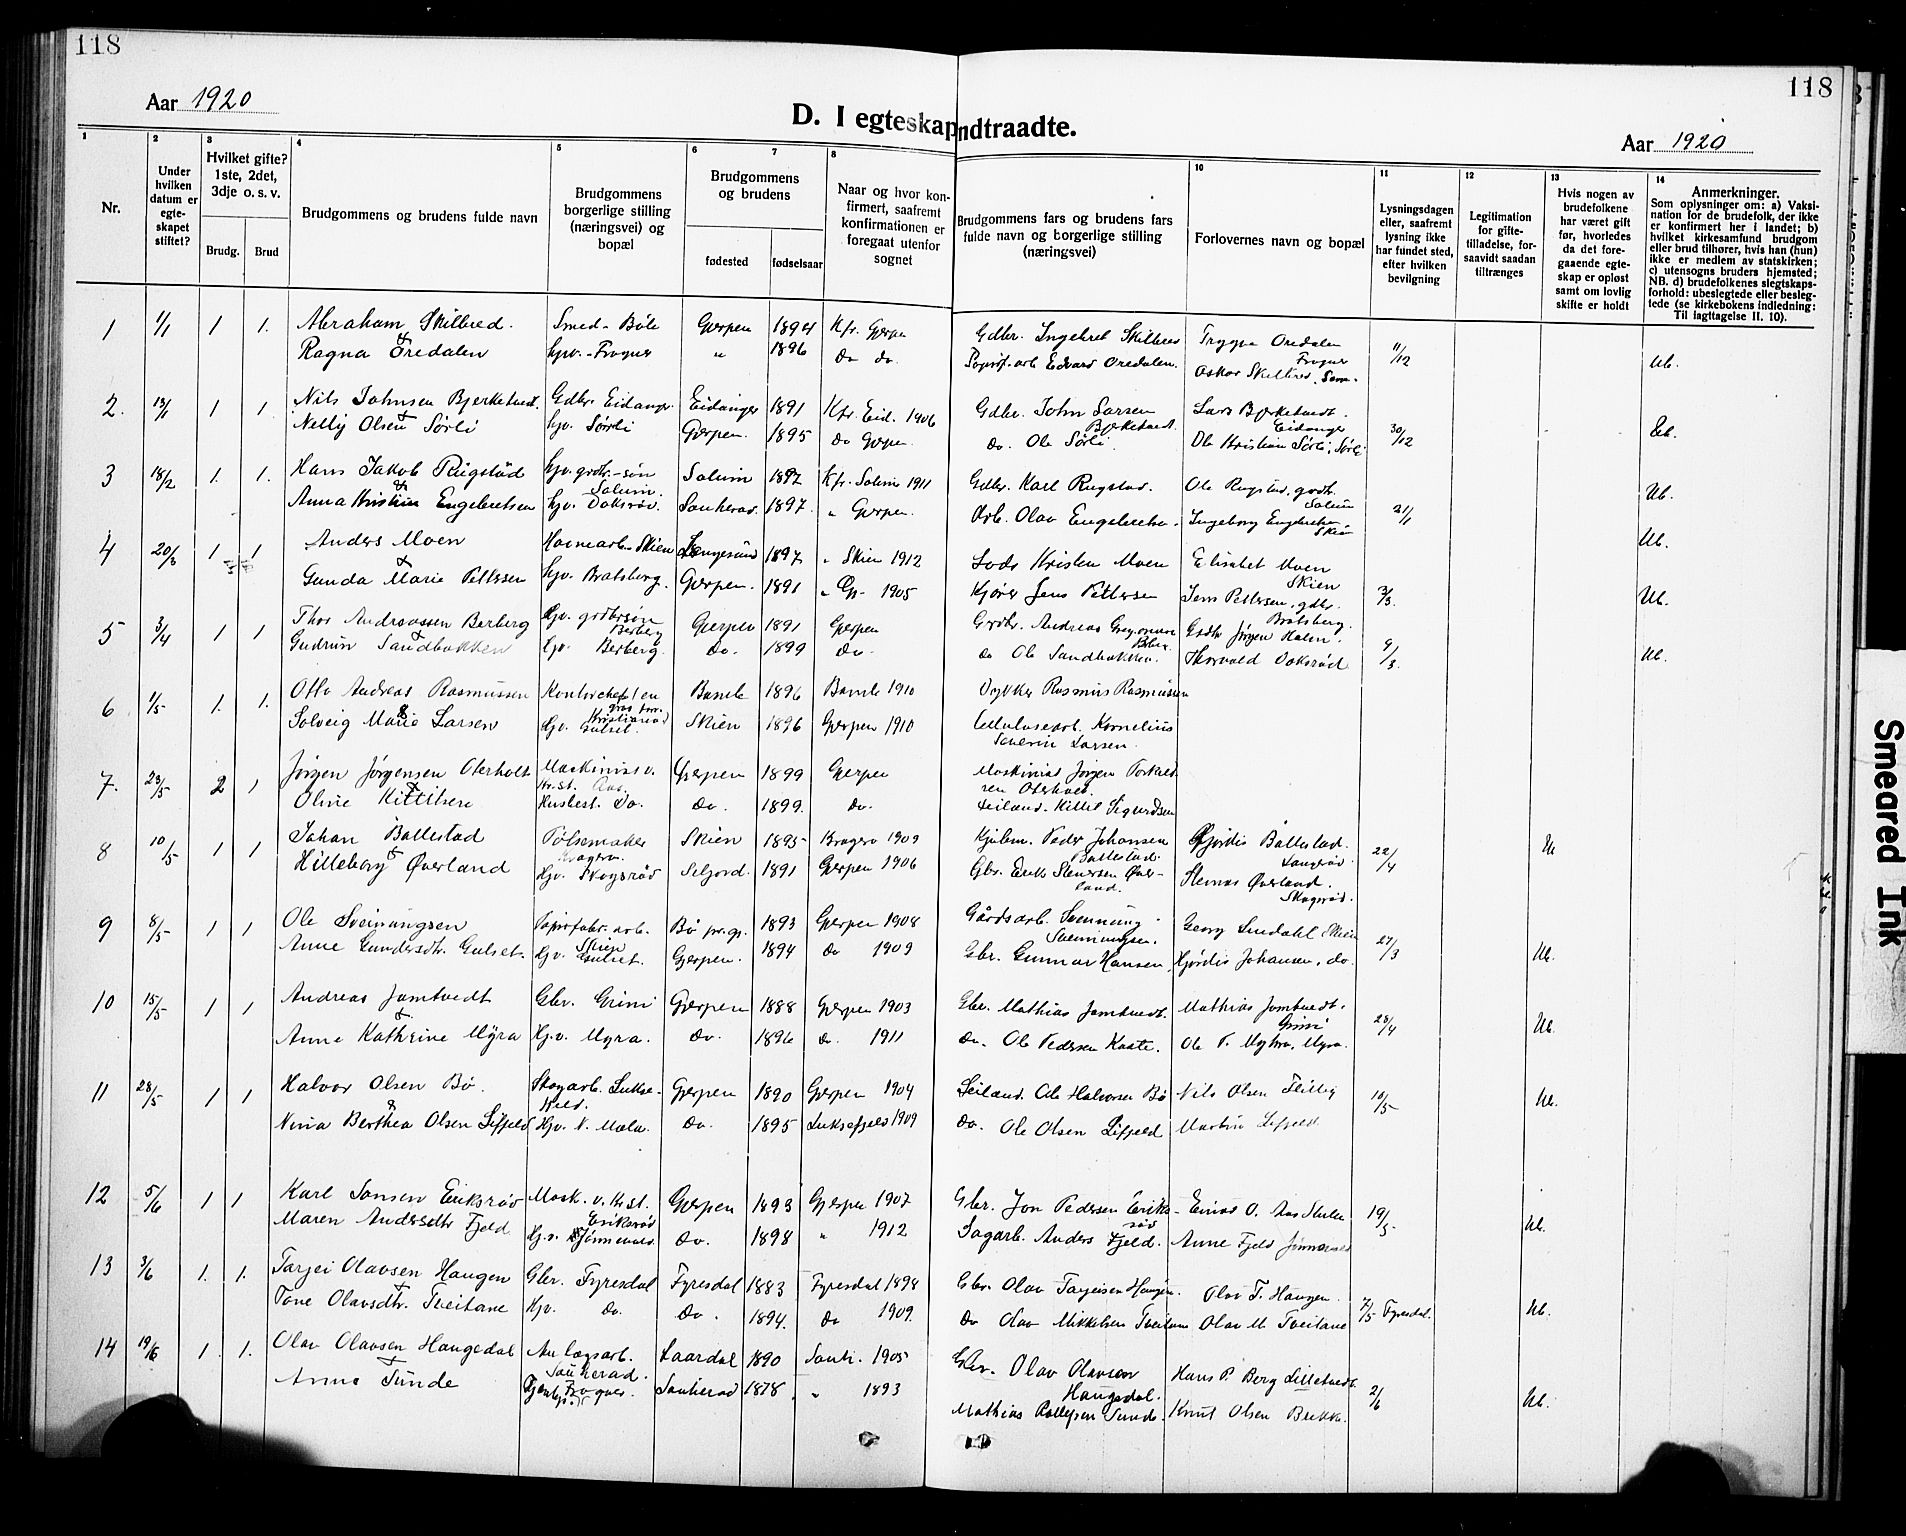 118
118
Aar 1920
D. I egteskap indtraadte.
Aar 1920
1
2
3
4
5
6
7
8
10
11
12
13
14
Nr.
Under hvilken datum er egte-skapet stiftet?
Hvilket gifte? 1ste, 2det, 3dje o. s. v.
Brudg.
Brud
Brudgommens og brudens fulde navn
Brudgommens borgerlige stilling (næringsvei) og bopæl
Brudgommens og brudens
fødested
fødselsaar
Naar og hvor kon-firmert, saafremt konfirmationen er foregaat utenfor sognet
Brudgommens fars og brudens fars fulde navn og borgerlige stilling (næringsvei)
Forlovernes navn og bopæl
Lysningsdagen eller, saafremt lysning ikke har fundet sted, efter hvilken bevilgning
Legitimation for gifte-tilladelse, for-saavidt saadan tiltrænges
Hvis nogen av brudefolkene har været gift før, hvorledes da det fore-gaaende egte-skap er opløst samt om lovlig skifte er holdt
Anmerkninger. Som oplysninger om: a) Vaksi-nation for de brudefolk, der ikke er konfirmert her i landet; b) hvilket kirkesamfund brudgom eller brud tilhører, hvis han (hun) ikke er medlem av statskirken; c) utensogns bruders hjemsted; NB. d) brudefolkenes slegtskaps-forhold: ubeslegtede eller besleg-tede (se kirkebokens indledning: Til Iagttagelse II. 10).
1 1/1 1 1. Abraham Skilbred. Smed - Böle Gjerpen 1894 Kfr. Gjerpen Gdbr. Ingebret Skilbred Trygve Oredalen Frogner
& Ragna Oredalen hjv. - Frogner " 1896 do do. Papirf. arb. Edvard Oredalen. Oskar Skilbred, 11/12 Ub.
2. 13/1 1 1. Nils Johnsen Bjerketvedt. Gdbr. Eidanger Eidanger 1891 Kfr. Eid. 1906 Gdbr. John Larsen Bjerketvedt Lars Bjerketvedt. Eidanger
& Nelly Olsen Sørli hjv. Sørli Gjerpen. 1895 do Gjerpen. do. Ole Sørli. Ole Kristian Sørli, Sørli 30/12 Ub.
3 18/2 1. 1. Hans Jakob Rugstad hjv. grdbr.-søn Solum. Solum 1892 Kfr. Solum 1911 Gdbr. Karl Rugstad. Ole Rugstad, gdbr. Solum
& Anna Kristine Engebretsen hjv. Doksrød. Sauherad. 1897. " Gjerpen. Arb. Olav Engebretsen. Ingeborg Engebretsen Skien 21/1 Ub.
4 20/3 1 1 Anders Moen Havnearb. Skien Langesund 1897 " Skien 1912 Lods Kristen Moen Elisabet Moen Skien Ub.
& Gunda Marie Pettersen hjv. Bratsberg. Gjerpen. 1891 " Gj- 1905 Kjører Jens Pettersen Jens Pettersen, gdbr. Bratsberg. 3/3. Ub.
5 3/4 1 1 Thor Andreassen Berberg Hjv. grdbrsøn Berberg Gjerpen 1891 Gjerpen Grdbr. Andreas Gdbr Jørgen Holm.
& Gudrun Sandbakken Hjv. Berberg. do. 1899 do. do Ole Sandbakken. Thorvald Doksrød 9/3. Ub.
6 1/5 1. 1. Otto Andreas Rasmussen Kontorchef Bamle 1896 Bamle 1910 Dykker Rasmus Rasmussen
& Solveig Marie Larsen Hjv. Gulset. Skien 1896 Gjerpen 1910 Cellulosearb. Kornelius Severin Larsen.
7. 23/5 2 1 Jørgen Jørgensen Oterholt Maskinist v. Gjerpen 1899 Gjerpen Maskinist Jørgen Oterholt.
& Oline Kittilsen Husbest. Do. do. 1899. do. Leiland. Kittil Sigurdsen
8 10/5 1 1 Johan Ballestad Pølsemaker Kragerø. Skien 1895 Kragerø 1909 Kjulem. Peder Johansen Ballestad. Hjørdis Ballestad. Langerød.
& Hilleborg Øverland Hjv. Skogsrød Seljord. 1891 Gjerpen 1906 Gbr. Erik Stenersen Øver-land. Stenar Øverland. Skogsrød. 22/4 Ub
9 8/5 1 1 Ole Sveinungsen Papirfabr. arb. Skien Bø pr.gj. 1893 Gjerpen 1908 Gårdsarb. Svennung Svennungsen. Georg Lindahl Skien
Anne Gundersdtr. Gulset. Hjv. Gulset. Gjerpen. 1894 do 1909 Gbr. Gunnar Hansen, Hjørdis Johansen, do. 27/3 Ub.
10 15/5 1 1 Andreas Jomtvedt Gbr. Grini Gjerpen 1888 Gjerpen 1903 Gbr. Mathias Jomtvedt. Mathias Jomtvedt. Grini
& Anne Kathrine Myra Hj.v. Myra. do. 1896 do. 1911 do. Ole Pedersen Kaate. Ole P. Myhra, Myra. 28/4 Ub.
11 28/5 1 1 Halvor Olsen Bø. Skogarb. Lukse-kleld. Gjerpen 1890 Gjerpen 1904 Leiland. Ole Halvorsen Bø Nils Olsen Flittig
& Nina Berthea Olsen Lifjeld Hjv. N. Mæla. do. 1895 Luksefjeld 1909 do. Ole Olsen Lifjeld Martin Lifjeld 10/5 Ub.
12 5/6 1 1 Karl Jonsen Eriksrød Mask. v. Kr.st. Eriksrød Gjerpen 1893 Gjerpen 1907 Gbr. Jon Pedersen Eriks-rød Einar O. Aas
Maren Andersdtr Fjeld Hj.v. Jønnevald. do. 1898 " 1912 Sagarb. Anders Fjeld. Anne Fjeld Jønnevald 19/5 Ub.
13 3/6 1. 1. Tarjei Olavsen Haugen Gbr. Fyresdal Fyresdal 1883 Fyresdal 1898 Gbr. Olav Tarjeisen Haugen. Olav T. Haugen.
& Tone Olavsdtr. Tveitane Hjv. do. do. 1894. do 1909. do Olav Mikkelsen Tveitane Olav M. Tveitane 7/5 Fyresdal. Ub.
14 19/6 1. 1. Olav Olavsen Haugedal Anlægsarb. Sauherad. Laardal 1890 Sauh. 1905 Gbr. Olav Olavsen Haugedal. Hans P. Berg Lilletvedt.
& Anne Sunde Frogner. Sauherad 1878. " 1893 Mathias Rollefsen Sunde. Knut Olsen Bekk. 2/6 Ub.
Smeared Ink